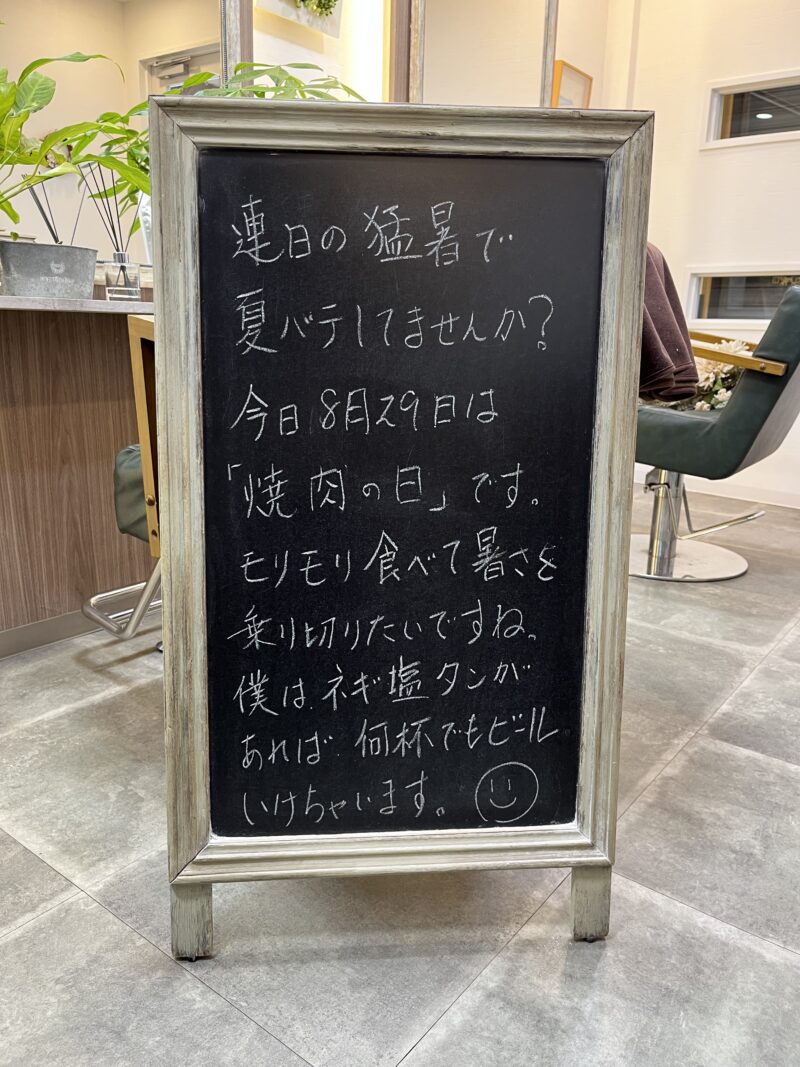 連日の猛暑で
夏バテしてませんか?
今日8月29日は
「焼肉の日」です。
モリモリ食べて暑さを
乗り切りたいですね。
僕は、ネギ塩タンが
あれば、何杯でもビール
いけちゃいます。